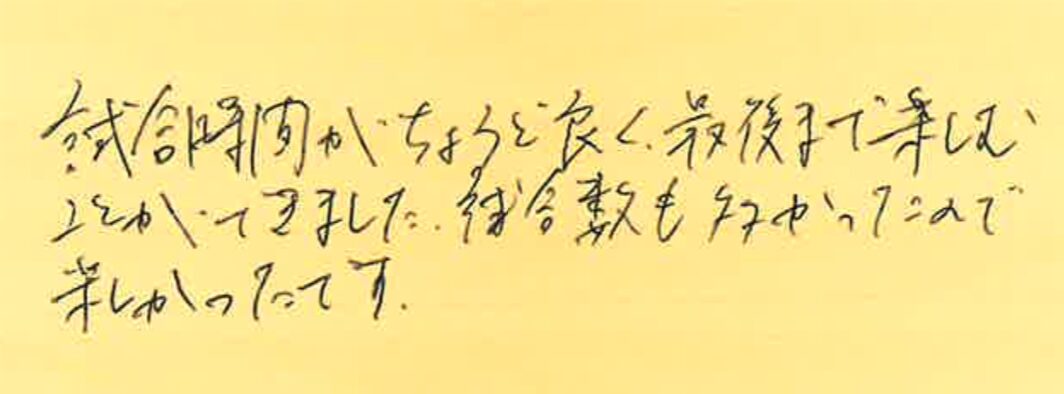 試合時間がちょうど良く、最後まで楽しむ
ことができました。試合数も多かったので
楽しかったです。